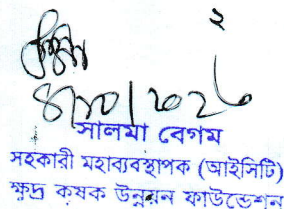 ২
সালমা বেগম
সহকারী মহাব্যবস্থাপক (আইসিটি)
ক্ষুদ্র কৃষক উন্নয়ন ফাউন্ডেশন